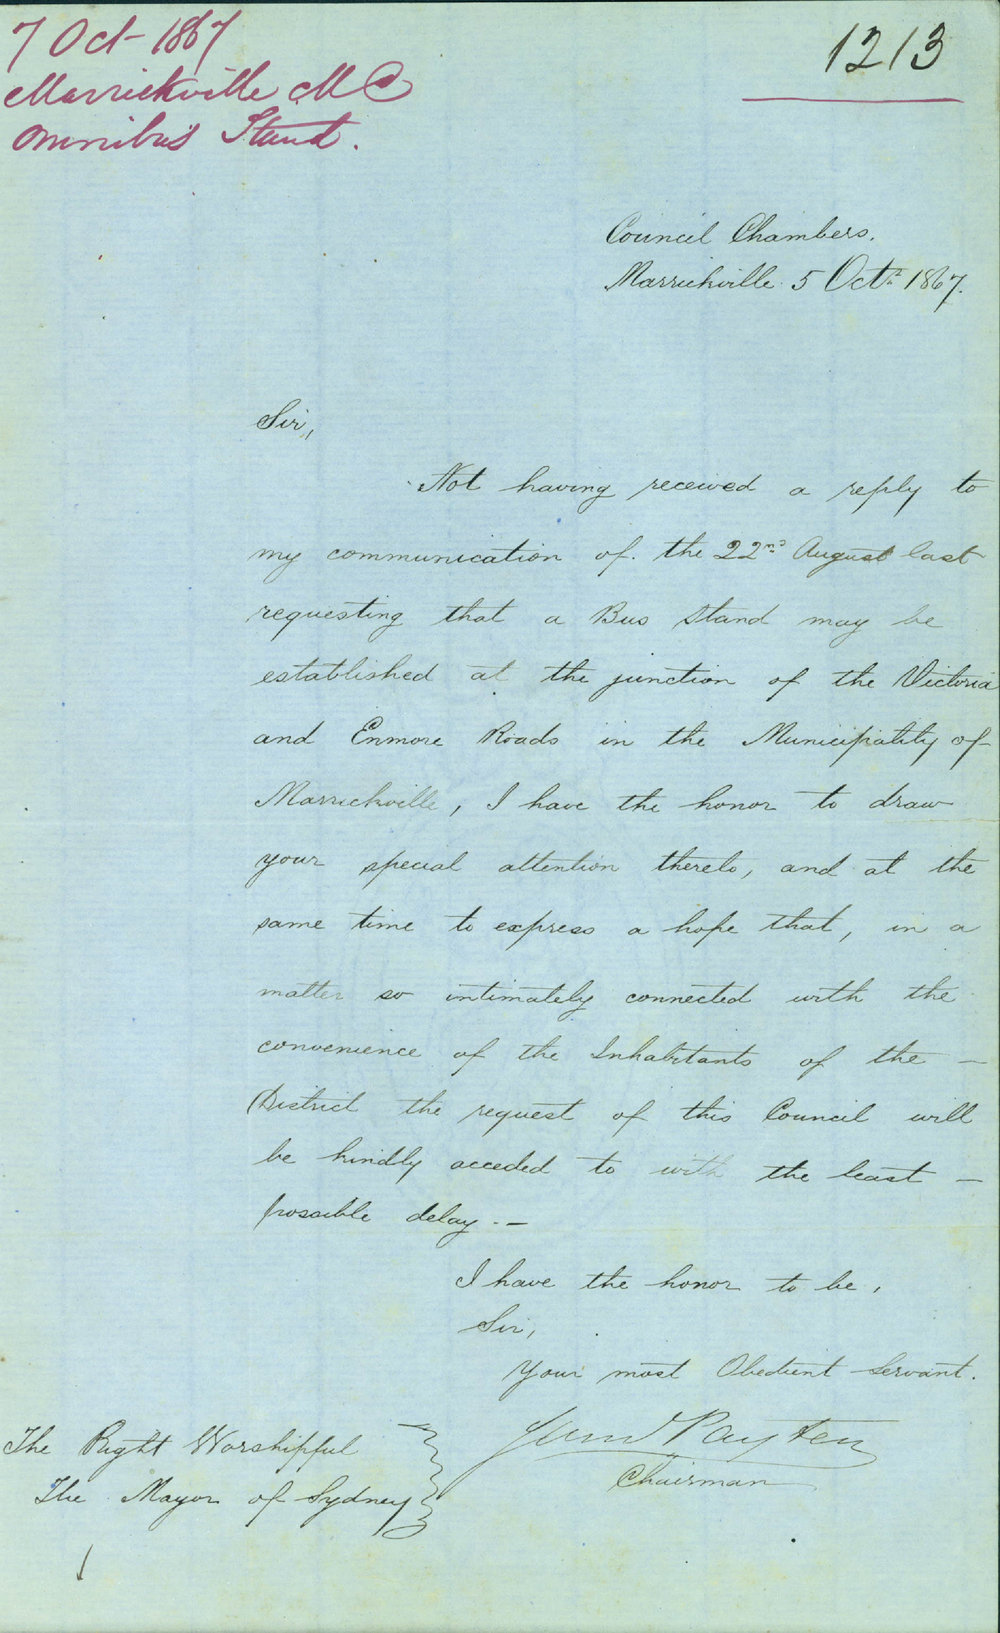 7 Oct 1867
Marrickville M C
Omnibus Stand.
1213
Council Chambers.
Marrickville 5 Octr 1867.
Sir,
Not having received a reply to
my communication of the 22nd August last
requesting that a Bus Stand may be
established at the junction of the Victoria
and Enmore Roads in the Municipality of
Marrickville, I have the honor to draw
your special attention thereto, and at the
same time to express a hope that, in a
matter so intimately connected with the
convenience of the Inhabitants of the —
District the request of this Council will
be kindly acceded to with the least —
possible delay. —
I have the honor to be,
Sir,
Your most Obedient Servant.
Payten
Chairman
The Right Worshipful
The Mayor of Sydney